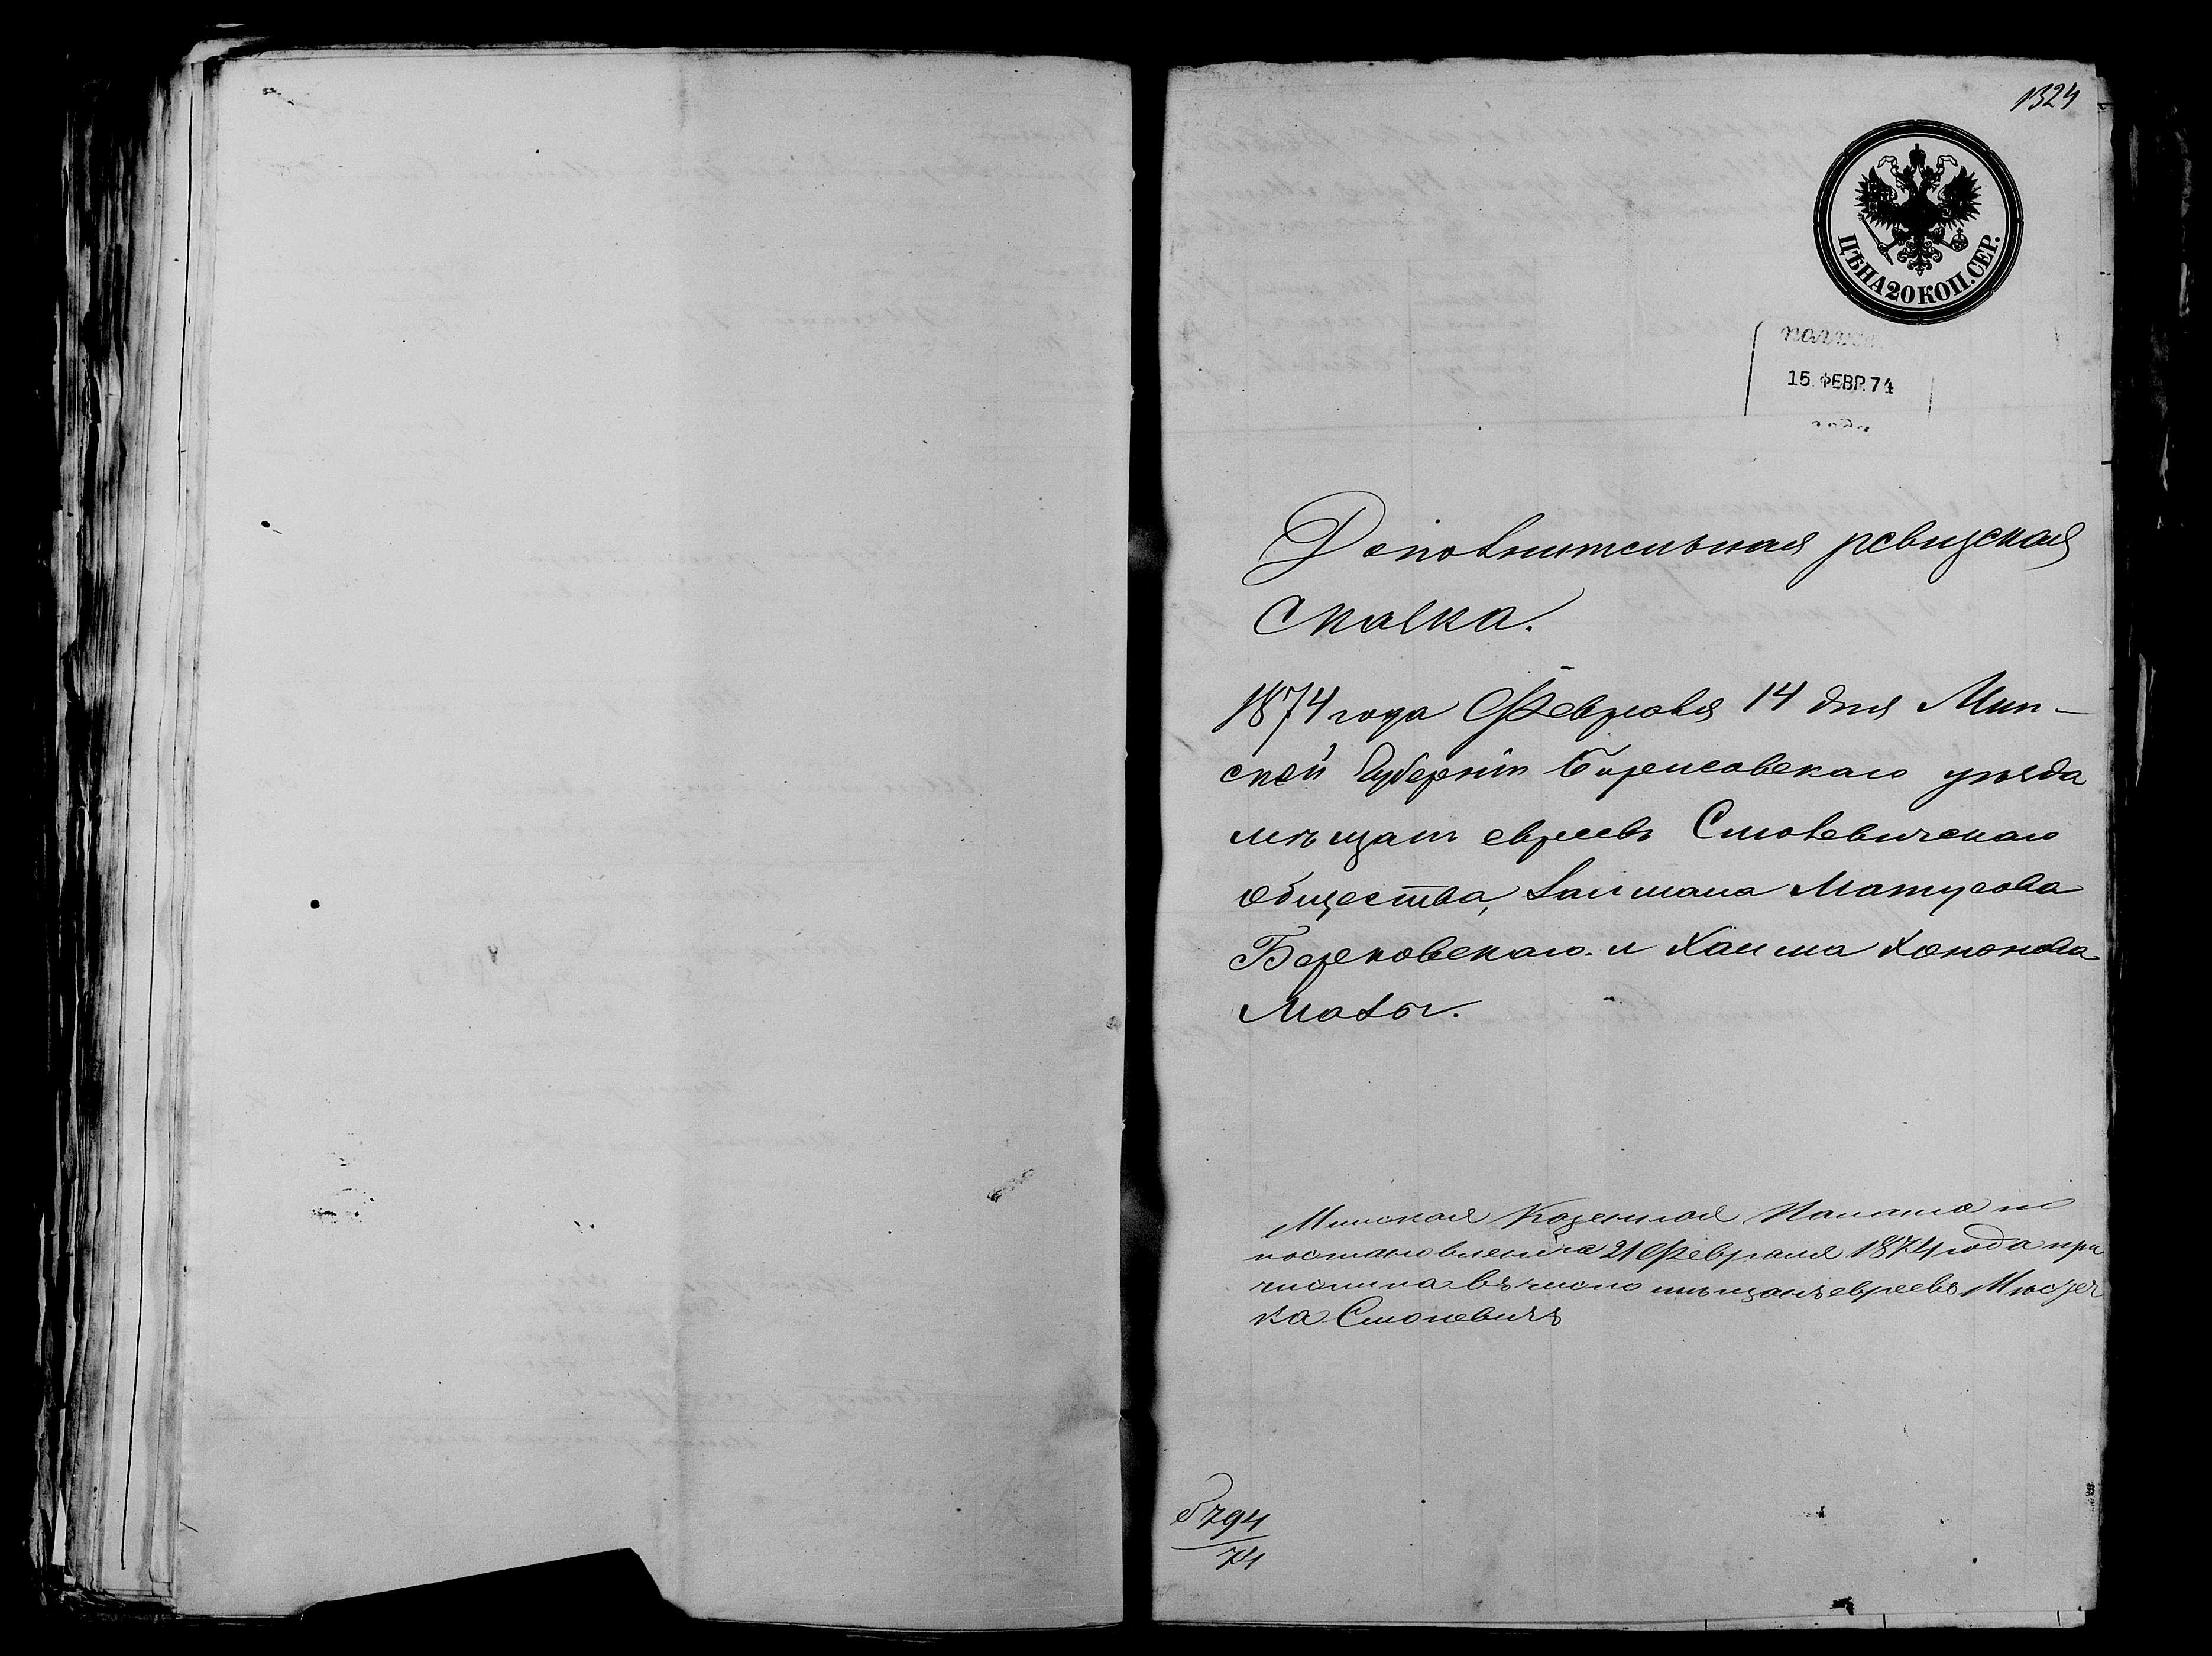 1324
ЦѢНА 20 КОП. СЕР.
15 ФЕВР. 74
Дополнительная ревизская
сказка.
1874 года Февраля 14 дня Мин-
ской Губерніи Борисовскаго уѣзда
мѣщанъ евреевъ Смолевичскаго
общества, Залмана Матусова
Берковскаго и Хаима Хононова
Минская Казенная Палата по
постановленію 21 Февраля 1874 года при
числила въ число мѣщанъ евреевъ Мѣстеч
ка Смолевичъ
794
74